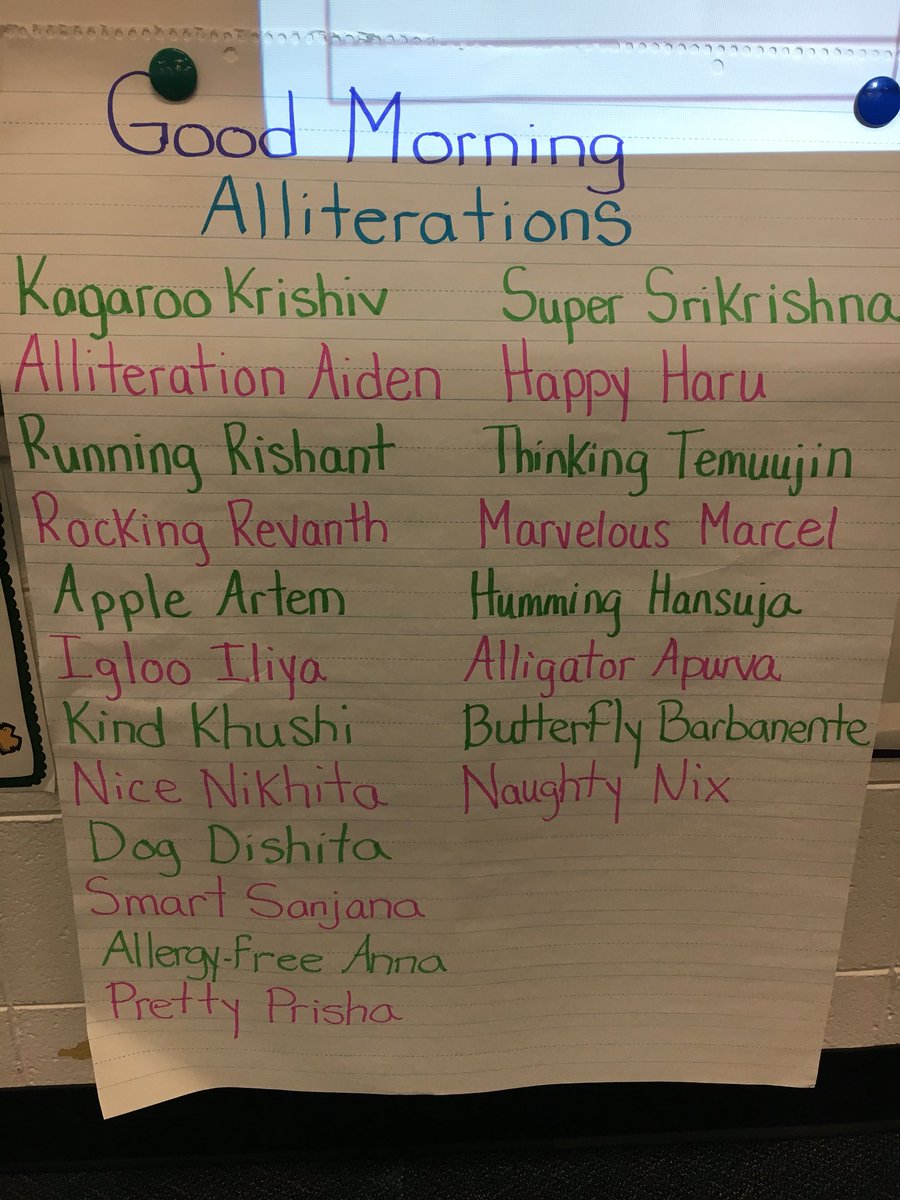 Good Morning
Alliterations
Kagaroo Krishiv
Alliteration Aiden
Running Rishant
Rocking Revanth
Apple Artem
Igloo Iliya
Kind Khushi
Nice Nikhita
Dog Dishita
Smart Sanjana
Allergy-free Anna
Pretty Prisha
Super Srikrishna
Happy Haru
Thinking Temuujin
Marvelous Marcel
Humming Hansuja
Alligator Apurva
Butterfly Barbanente
Naughty Nix